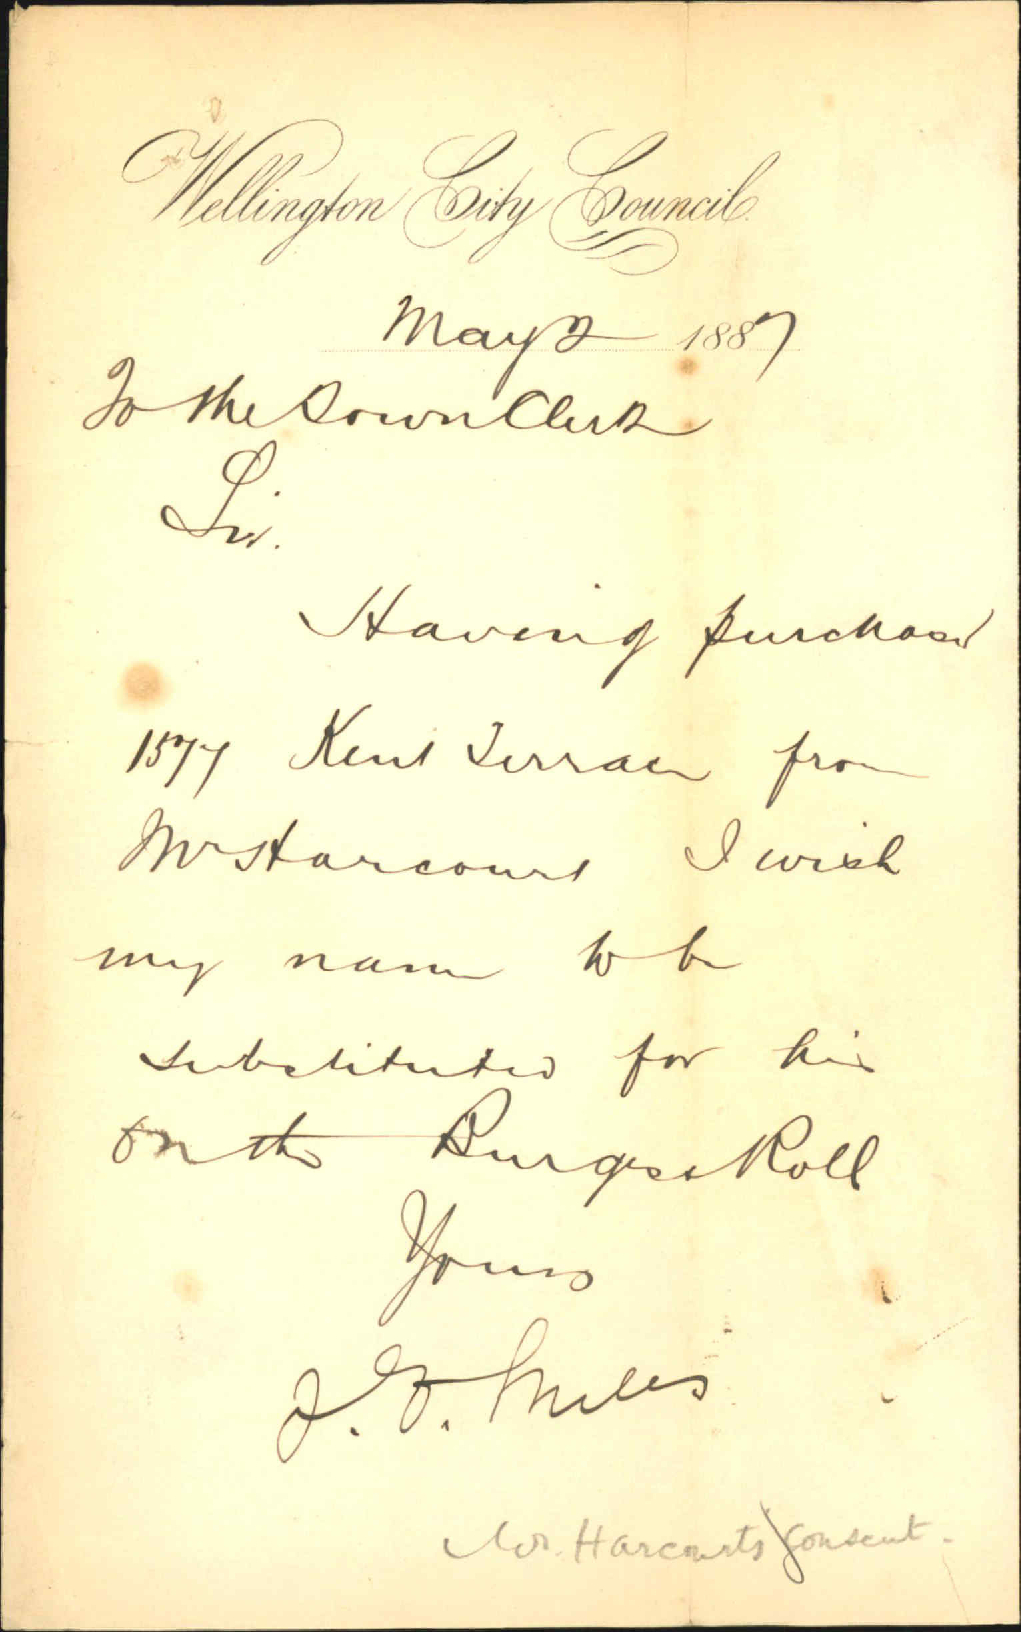 Wellington City Council.
May 2 1887
To the Town Clerk
Sir.
Having purchased
1577 Kent Terrace from
Mr Harcourt I wish
my name to be
substituted for his
on the Burgess Roll
Yours
J. F. Mills
Mr. Harcourts consent.